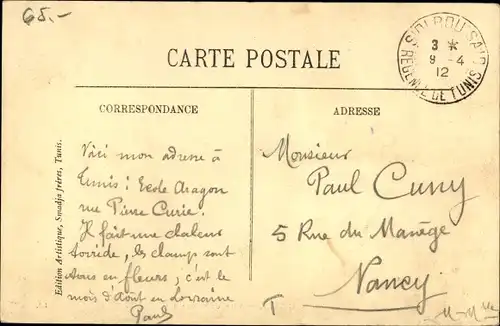 65.-
SIDI BOU SAID
3 *
9 -4
12
RÉGENCE DE TUNIS
CARTE POSTALE
CORRESPONDANCE
ADRESSE
Voici mon adresse à
Tunis : Ecole Aragon
rue Pierre Curie.
Il fait une chaleur
torride, les champs sont
en fleurs, c'est le
mois d'Août en Lorraine
Paul
Monsieur
Paul Cuny
5 Rue du Manège
Nancy
T
Edition Artistique, Smadja frères, Tunis.